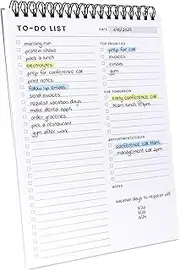 TO-DO LIST
DATE
TOP PRIORITIES
morning run
protein shake
pack a lunch
electrolytes
prep for conference call
print notes
follow up emails
send invoices
request vacation days
make dental appt.
order groceries
pick a restaurant
gym after work
prep for call
invoices
emails
gym
FOR TOMORROW
early conference call
team lunch
APPOINTMENTS/CALLS
conference call 11am
management call 2pm
NOTES
vacation days to request off